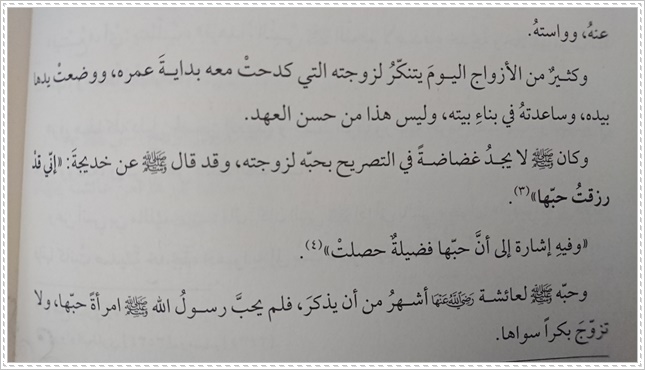 عنهُ، وواستهُ.
وكثيرٌ من الأزواج اليومَ يتنكّرُ لزوجته التي كدحتْ معه بدايةَ عمره، ووضعتْ يدها
بيده، وساعدتهُ في بناءِ بيته، وليس هذا من حسن العهد.
وكان ﷺ لا يجدُ غضاضةً في التصريح بحبّه لزوجته، وقد قال ﷺ عن خديجةَ: «إنّي قدْ
رزقتُ حبّها»(٣).
«وفيهِ إشارة إلى أنَّ حبّها فضيلةٌ حصلتْ»(٤).
وحبّه ﷺ لعائشة رَضِيَ اللَّهُ عَنْهَا أشهرُ من أن يذكرَ، فلم يحبَّ رسولُ الله ﷺ امرأةً حبّها، ولا
تزوّجَ بكراً سواها.